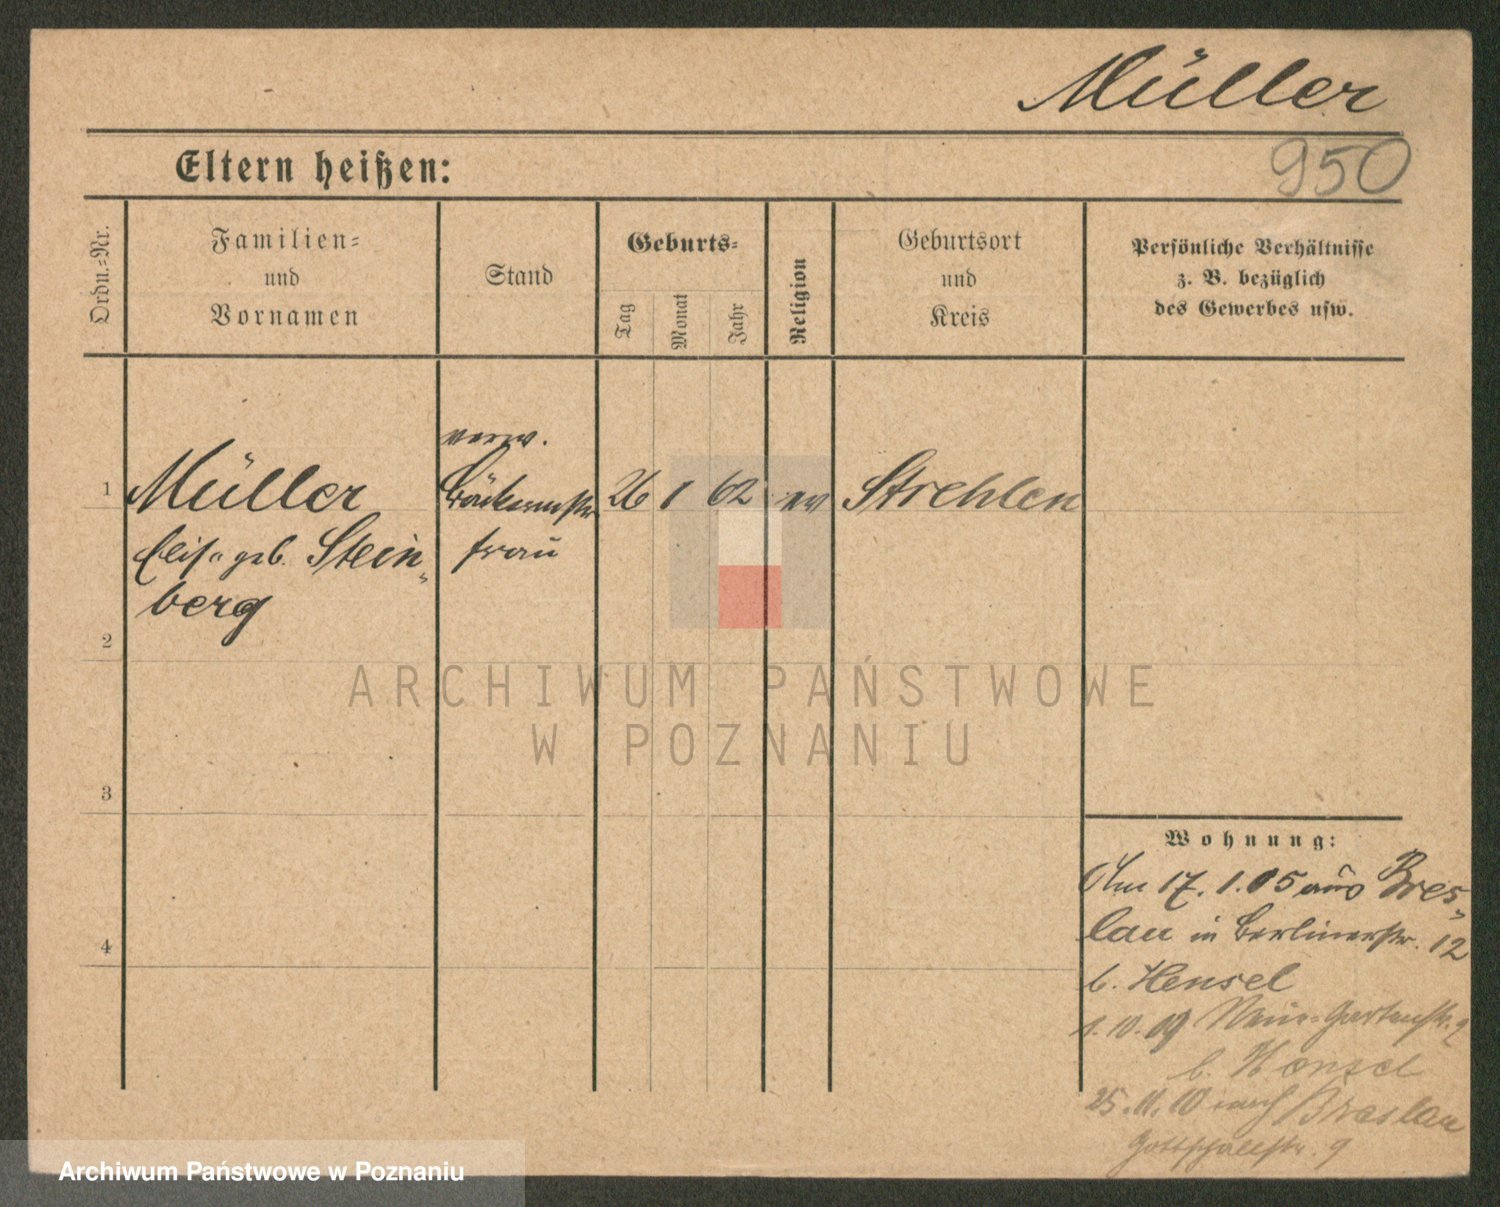 Müller
950
Eltern heißen:
Ordn.=Nr.
Familien=
und
Vornamen
Stand
Geburts=
Tag
Monat
Jahr
Religion
Geburtsort
und
Kreis
Persönliche Verhältnisse
z. B. bezüglich
des Gewerbes usw.
verw.
1 Müller Bäckermstr 26 1 62 ev Strehlen
Elis. geb. Stein= frau
berg
2
3
4
Wohnung:
Am 17. 1. 05 aus Bres=
lau in Berlinerstr. 12
b. Hensel
1. 10. 09 Neue=Gartenstr.
b. Hensel
25. 11. 10 nach Breslau
Gottschallstr. 9
ARCHIWUM PAŃSTWOWE
W POZNANIU
Archiwum Państwowe w Poznaniu